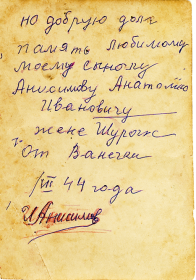 на добрую долг
память любимому
моему сыночку
Анисимову Анатолию
Ивановичу
жене Шурочк
От Ванечки
1/III 44 года
И Анисимов